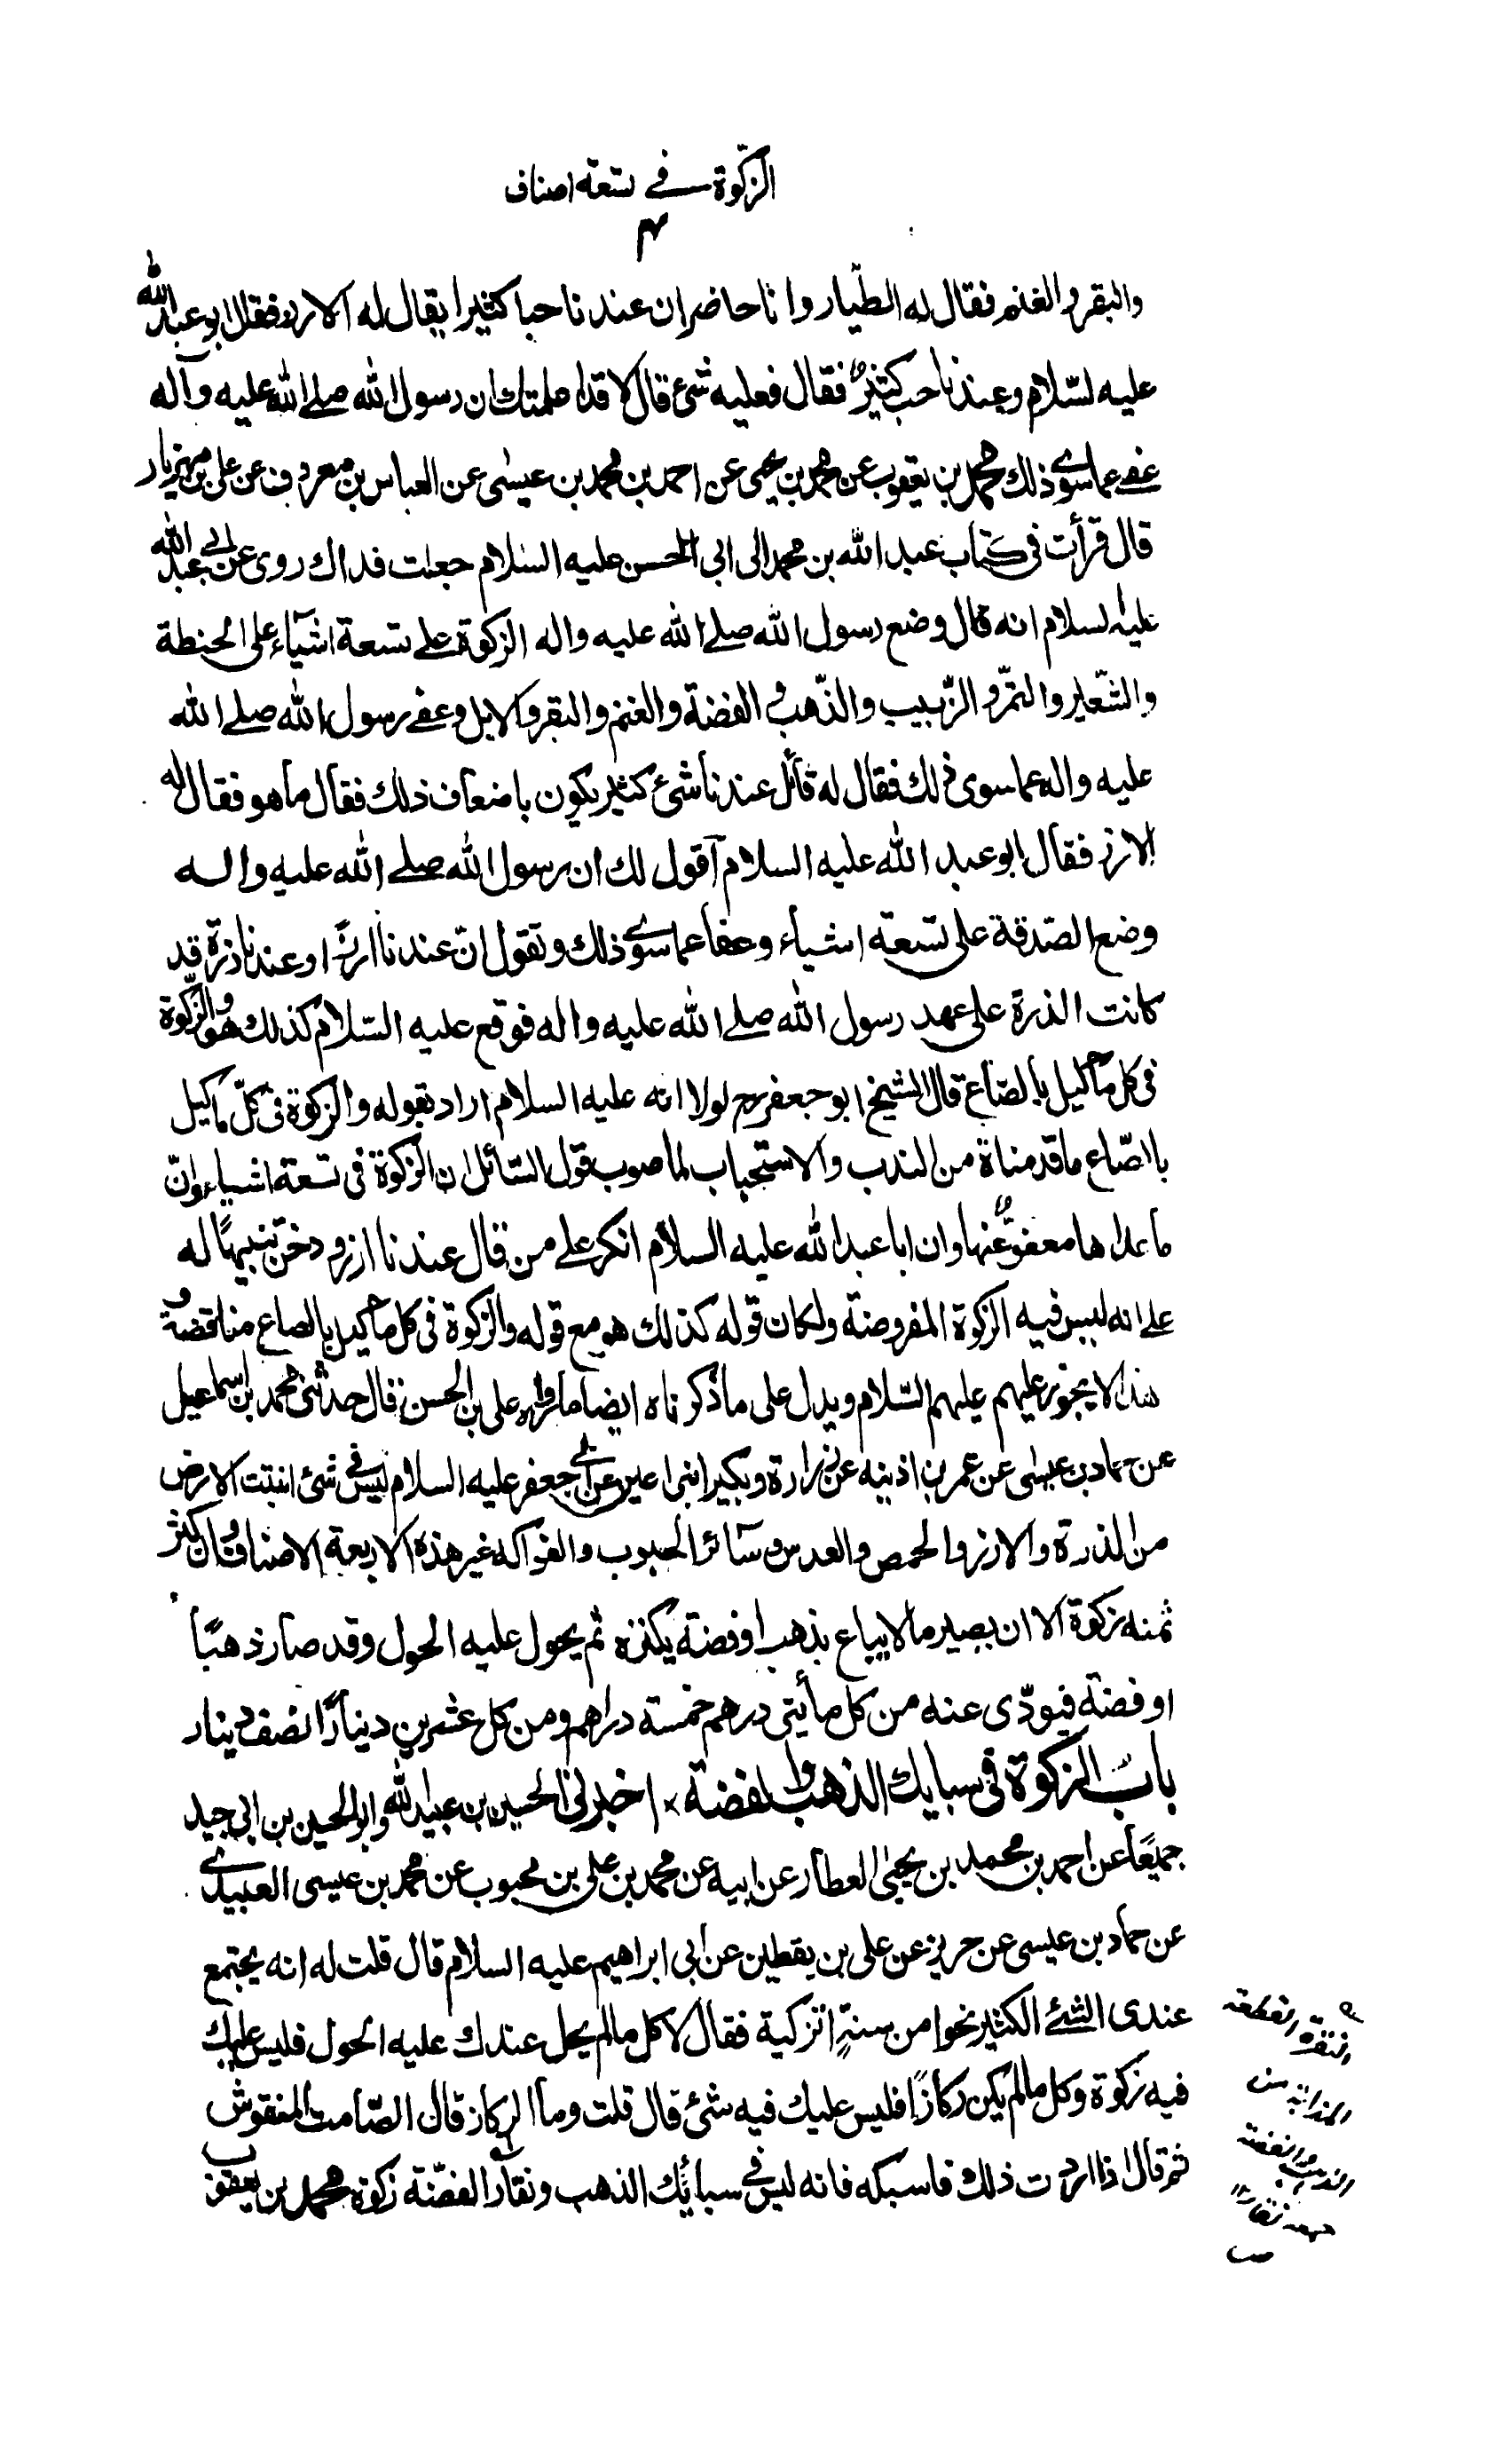 الزكوة في تسعة اصناف
والبقر والغنم فقال له الطيار وانا حاضر ان عندنا حبا كثيرا يقال له الارز فقال ابو عبد الله
عليه لسّلام وعندنا حب كثيرٌ فقال فعليه شئ قال لا قد اعلمتك ان رسول الله صلى الله عليه وآله
عفى عما سوى ذلك محمد بن يعقوب عن محمد بن يحيى عن احمد بن محمد بن عيسى عن العباس بن معروف عن على بن مهزيار
قال قرأت فى كتاب عبد الله بن محمد الى ابى الحسن عليه السلام جعلت فداك روى عن ابى عبد الله
عليه لسلام انه قال وضع رسول الله صلى الله عليه واله الزكوة على تسعة اشياء على الحنطة
والشّعير والتمر والزّبيب والذّهب والفضة والغنم والبقر والابل وعفى رسول الله صلى الله
عليه واله عما سوى ذلك فقال له قائل عندنا شئ كثير يكون باضعاف ذلك فقال ما هو فقال له
الارز فقال ابو عبد الله عليه السلام آقول لك ان رسول الله صلى الله عليه واله
وضع الصدقة على تسعة اشياء وعفا عما سوى ذلك وتقول انّ عندنا ارزًا وعندنا ذرة قد
كانت الذرة على عهد رسول الله صلى الله عليه واله فوقع عليه السّلام كذلك هو والزّكوة
فى كل ما كيل بالصّاع قال الشيخ ابو جعفر رح لولا انه عليه السلام اراد بقوله والزكوة فى كلّ ما كيل
بالصّاع ما قدمناه من الندب والاستحباب لما صوب قول السّائل ان الزكوة فى تسعة اشياء وانّ
ما عداها معفوٌّ عنها وان ابا عبد الله عليه السلام انكر على من قال عندنا ارز ودخن تنبيهًا له
على انه ليس فيه الزكوة المفروضة ولكان قوله كذلك هو مع قوله والزكوة فى كل ما كيل بالصاع مناقضةً و
هذا لا يجوز عليهم عليهم السّلام ويدل على ما ذكرناه ايضا ما رواه على بن الحسن قال حدثنى محمد بن اسماعيل
عن حماد بن عيسى عن عمر بن اذينه عن زرارة وبكير ابنى اعين عن ابى جعفر عليه السلام ليس فى شئ انبتت الارض
من الذرة والارز والحمص والعدس وسائر الحبوب والفواكه غير هذه الاربعة الاصناف وان كثر
ثمنه زكوة الا ان يصير مالا يباع بذهب او فضة يكنزه ثم يحول عليه الحول وقد صار ذهبًا
او فضة فيودّى عنه من كل مأيتى درهم خمسة دراهم ومن كل عشرين دينارًا نصف دينار
باب الزكوة فى سبايك الذهب والفضة × اخبرنى الحسين بن عبيد الله وابو الحسين بن ابى جيد
جميعًا عن احمد بن محمد بن يحيى العطار عن ابيه عن محمد بن على بن محبوب عن محمد بن عيسى العبيدى
عن حماد بن عيسى عن حريز عن على بن يقطين عن ابى ابراهيم عليه السلام قال قلت له انه يجتمع
عندى الشئ الكثير نحوا من سنةٍ انزكيه فقال لا كل مالم يحل عندك عليه الحول فليس عليك
فيه زكوة وكل مالم يكن ركازًا فليس عليك فيه شئ قال قلت وما الركاز قال الصّامت المنقوش
ثم قال اذا اردت ذلك فاسبكه فانه ليس فى سبائك الذهب ونقار الفضّة زكوة محمد بن يعقوب
النقره القطعة
المذابة من
الذهب والفضة